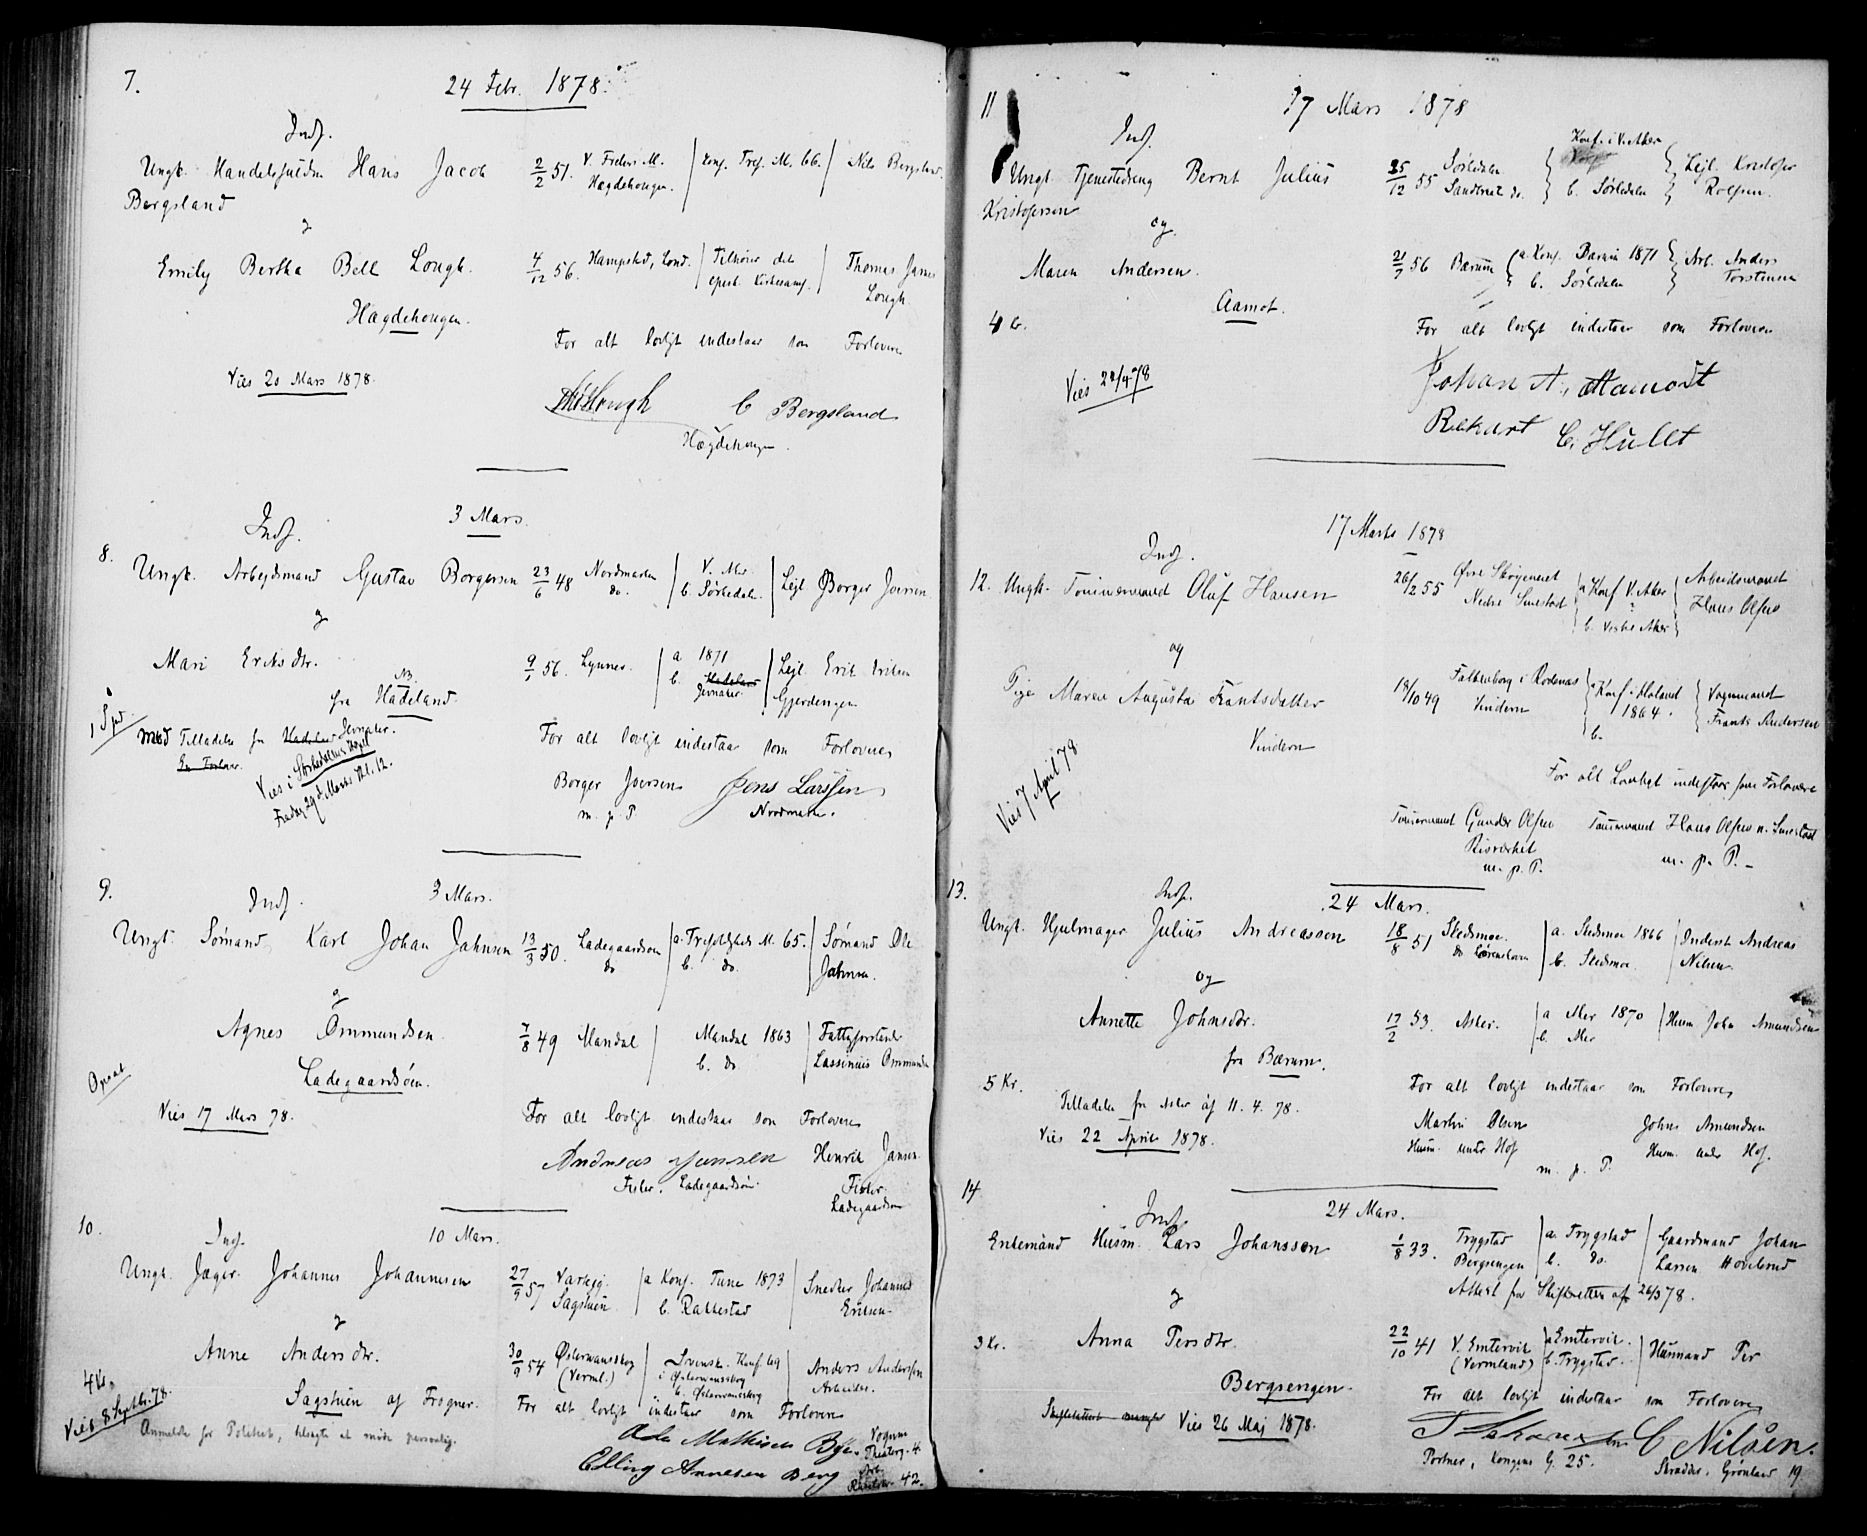 7.
24 Febr. 1878.
Indf.
Ungk. Handelsfuldm Hans Jacob
Bergsland
2/2 51. V. Frelsers M.
Hægdehougen.
konf. Tref. M. 66.
Nils Bergsland.
og
Emily Bertha Bell Lough.
4/12 56. Hampsted, Lond.
Tilhører det
episk. Kirkesamf.
Thomas James
Lough
Hægdehougen.
For alt lovligt indestaar som Forlovere
Vies 20 Mars 1878.
C Bergsland
Hægdehougen.
3 Mars.
Indf.
8.
Ungk. Arbejdsmand Gustav Borgersen
23/6 48 Nordmarken
do.
V. Aker.
b. Sørkedalen.
Lejl Borger Joersen
og
Mari Eriksdtr.
9/1 56. Lynner.
a 1871
b. Hadeland
Jevnaker.
Lejl. Erik Eriksen
Gjerdengen
NB.
fra Hadeland.
1 Spd.
med Tilladelse fra Hadeland Jevnaker.
En Forlover.
Vies i Sørkedalens Kapel
Fredag 29de Marts Kl. 12.
For alt lovligt indestaar som Forlovere
Borger Joersen
m. p. P.
Jens Larssen
Nordmarken.
9.
3 Mars.
Indf.
Ungk. Sømand Karl Johan Jahnsen
13/3 50. Ladegaardsøen
do
a. Trefoldigheds M. 65.
b. do.
Sømand Ole
Jahnsen.
og
Agnes Ommundsen
7/8 49 Mandal
Mandal 1863
b. do.
Fattigforstander
Lassinius Ommundsen
Ladegaardsøen.
Opsat
Vies 17 Mars 78.
For alt lovligt indestaar som Forlovere
Andreas Jansen
Fisker. Ladegaardsøen.
Henrik Jansen
Fisker
Ladegaardsøen
10.
10 Mars.
Indf.
Ungk. Jæger Johannes Johannesen
27/9 57 Varteig.
Sagstuen.
a Konf. Tune 1873
b. Rakkestad
Snedker Johannes
Eriksen
og
Anne Andersdtr.
30/9 54 Østervansskog
(Verml.)
Svensk. Konf. 69
i Østervansskog
b. Østervansskog
Anders Andersen
Arbeider.
4 Kr.
Vies 8 Septbr. 78.
Sagstuen af Frogner.
For alt lovligt indestaar som Forlovere
Anmeldte for Politiet, tilsagte at møde personlig.
Ole Mathisen Bye. Vognm
Theaterg. 4.
Elling Annesen Berg
Arb. 42.
11
17 Mars 1878
Indf.
Ungk Tjenestedreng Bernt Julius
Kristofersen
25/12 55 Sørkedalen
Sandbraat do.
Konf. i V. Aker
b. Sørkedalen
Lejl. Kristofer
Rolfsen.
og.
Maren Andersen.
21/7 56 Bærum
a. Konf. Bærum 1871
b. Sørkedalen
Arb. Anders
Torstensen
Aamot.
4 kr.
For alt lovligt indestaar som Forlovere
Vies 22/4 78
Johan A. Aamodt
Rekart C. Hulet
17 Marts 1878
Indf.
12. Ungk. Tømmermand Oluf Hansen
26/2 55 Øvre Skøyenet
Nedre Smestad
a Konf V. Aker
b. Vestre Aker
Arbeidsmand
Hans Olsen
og
Pige Maren Augusta Frantsdatter
18/10 49 Falkenborg i Rodenæs
Vindern
Konf i Høland
1864.
b.
Vognmand
Frants Andersen
Vindern
Vies 7 April 78
For alt Lovligt indestaar som Forlovere
Tømmermand Gunder Olsen
Risværket
m. p. P.
Tømmermand Hans Olsen n. Smestad
m. p. P.
13.
Indf.
24 Mars.
Ungk. Hjulmager Julius Andreassen
18/8 51 Skedsmoe.
do Lørenskoven
a. Skedsmoe 1866
b. Skedsmoe
Inderst Andreas
Nilsen.
og
Annette Johnsdtr.
17/2 53. Asker.
a Asker 1870
b. Asker
Husm John Amundsen
fra Bærum.
5 Kr.
Tilladelse fra Asker af 11. 4. 78.
Vies 22 April 1878.
For alt lovligt indestaar som Forlovere
Martin Olsen
Husm. under Hof
Johns Amundsen
Husm. under Hof.
m. p. P.
14
24 Mars.
Indf.
Enkemand Husm. Lars Johanssen
1/8 33. Trygstad
Bergsengen
a. Trygstad
b. do.
Gaardmand Johan
Larsen Hovelsrud
Attest fra Skifteretten af 26/3 78.
og
3 Kr.
Anna Persdtr.
22/10 41 V. Emtervik
(Vermland)
a Emtervik.
b. Trygstad.
Husmand Per
Bergsengen.
For alt lovligt indestaar som Forlovere
Skifteattest mangler Vies 26 Maj 1878.
C Nilsen.
Portner, Kongens G. 25.
Skrædder, Grønland 19.